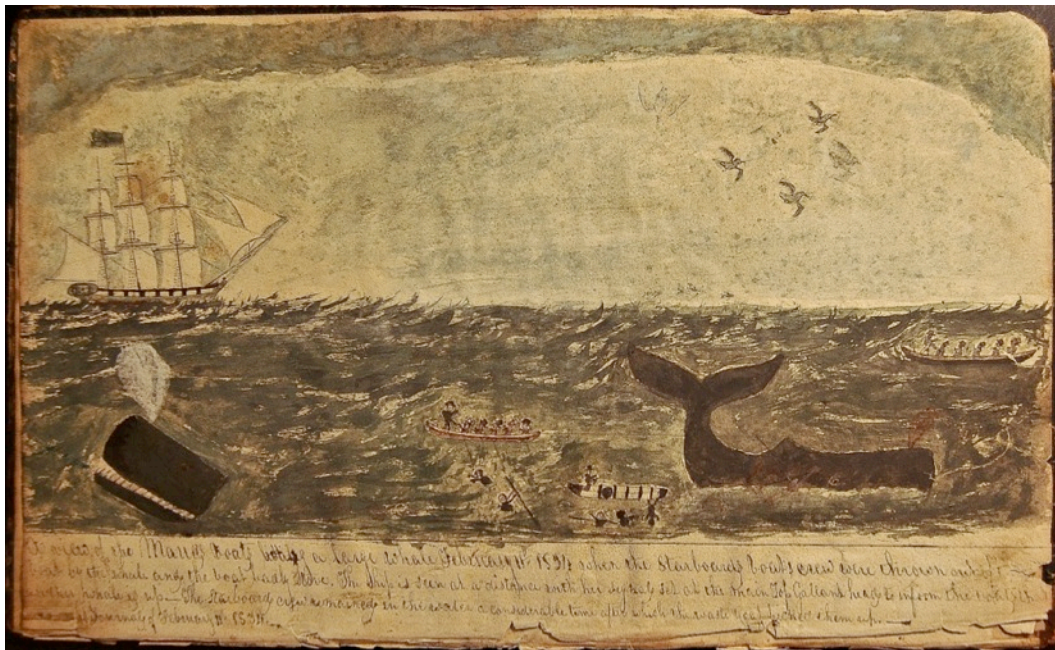 view of the Mary's boats a large whale February 11th 1834 when the starboard boats crew were thrown out of
boat by the whale and the boat badly stove. The ship is seen at a distance with her signal set at the Main Top Gallant head to inform the
whale is up— The starboard crew remained in the water a considerable time after which the waist boat picked them up.—
Journal of February 11 1834.